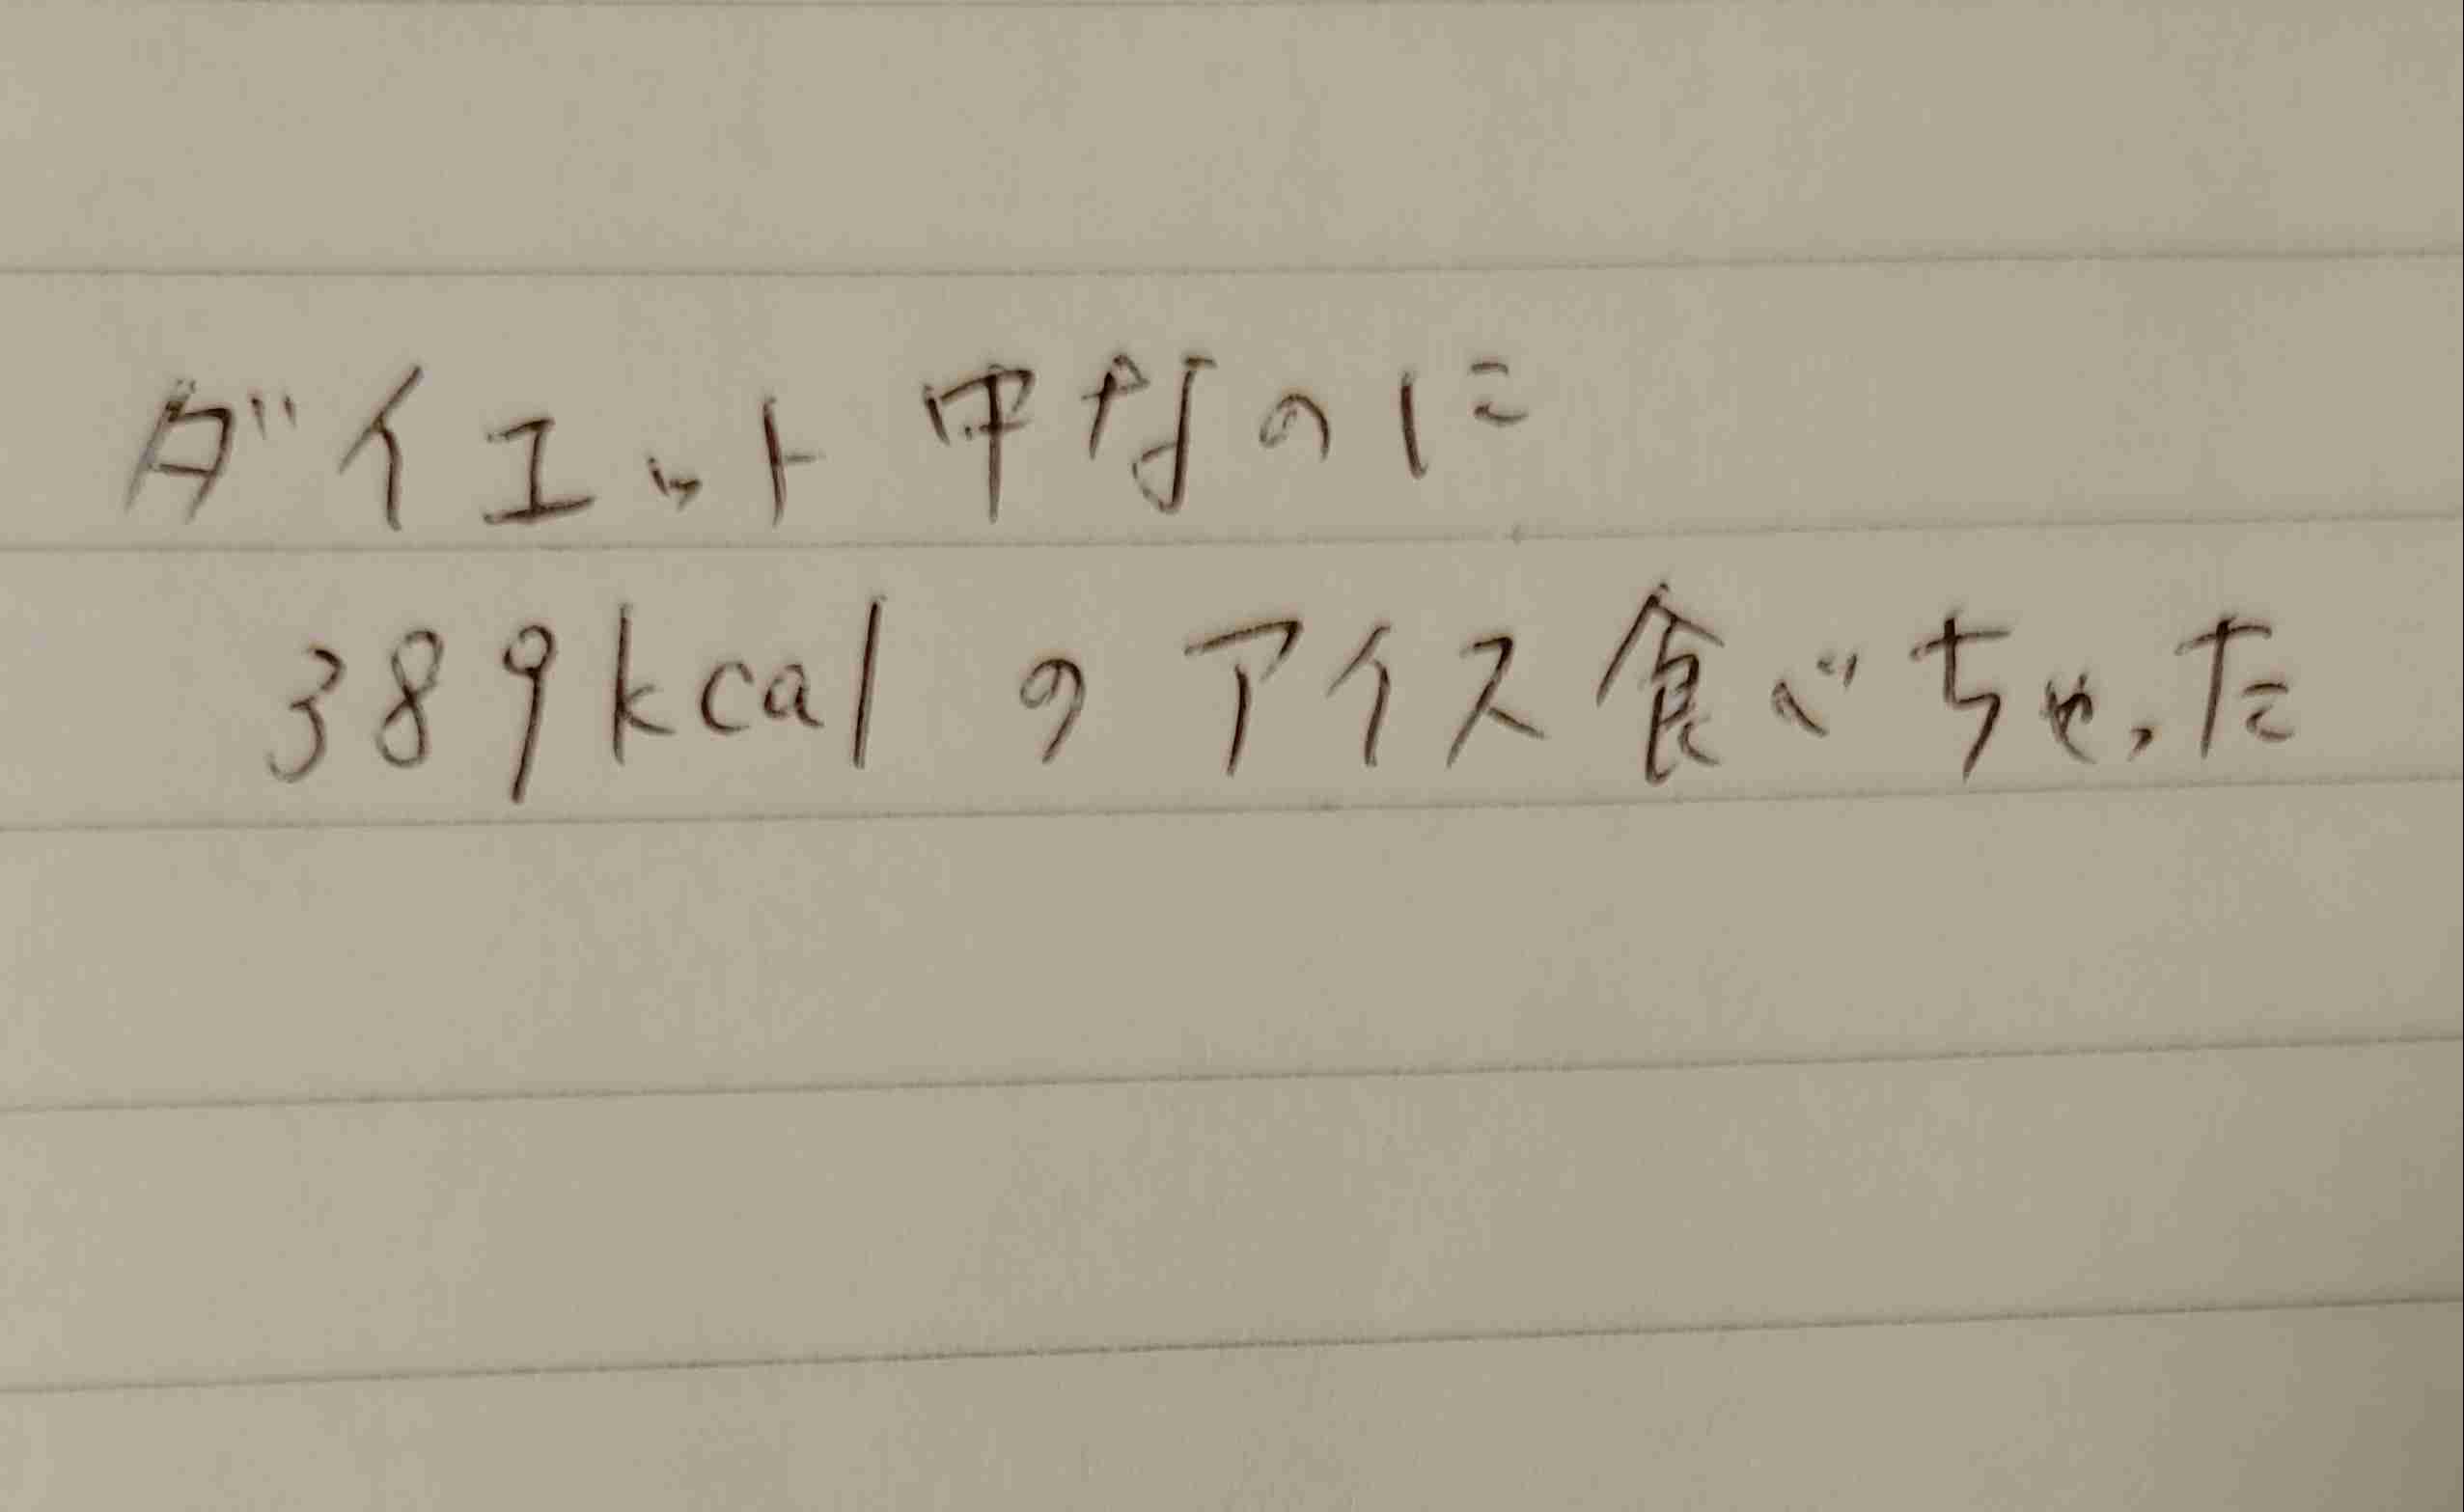 ダイエット中なのに
389kcalのアイス食べちゃった